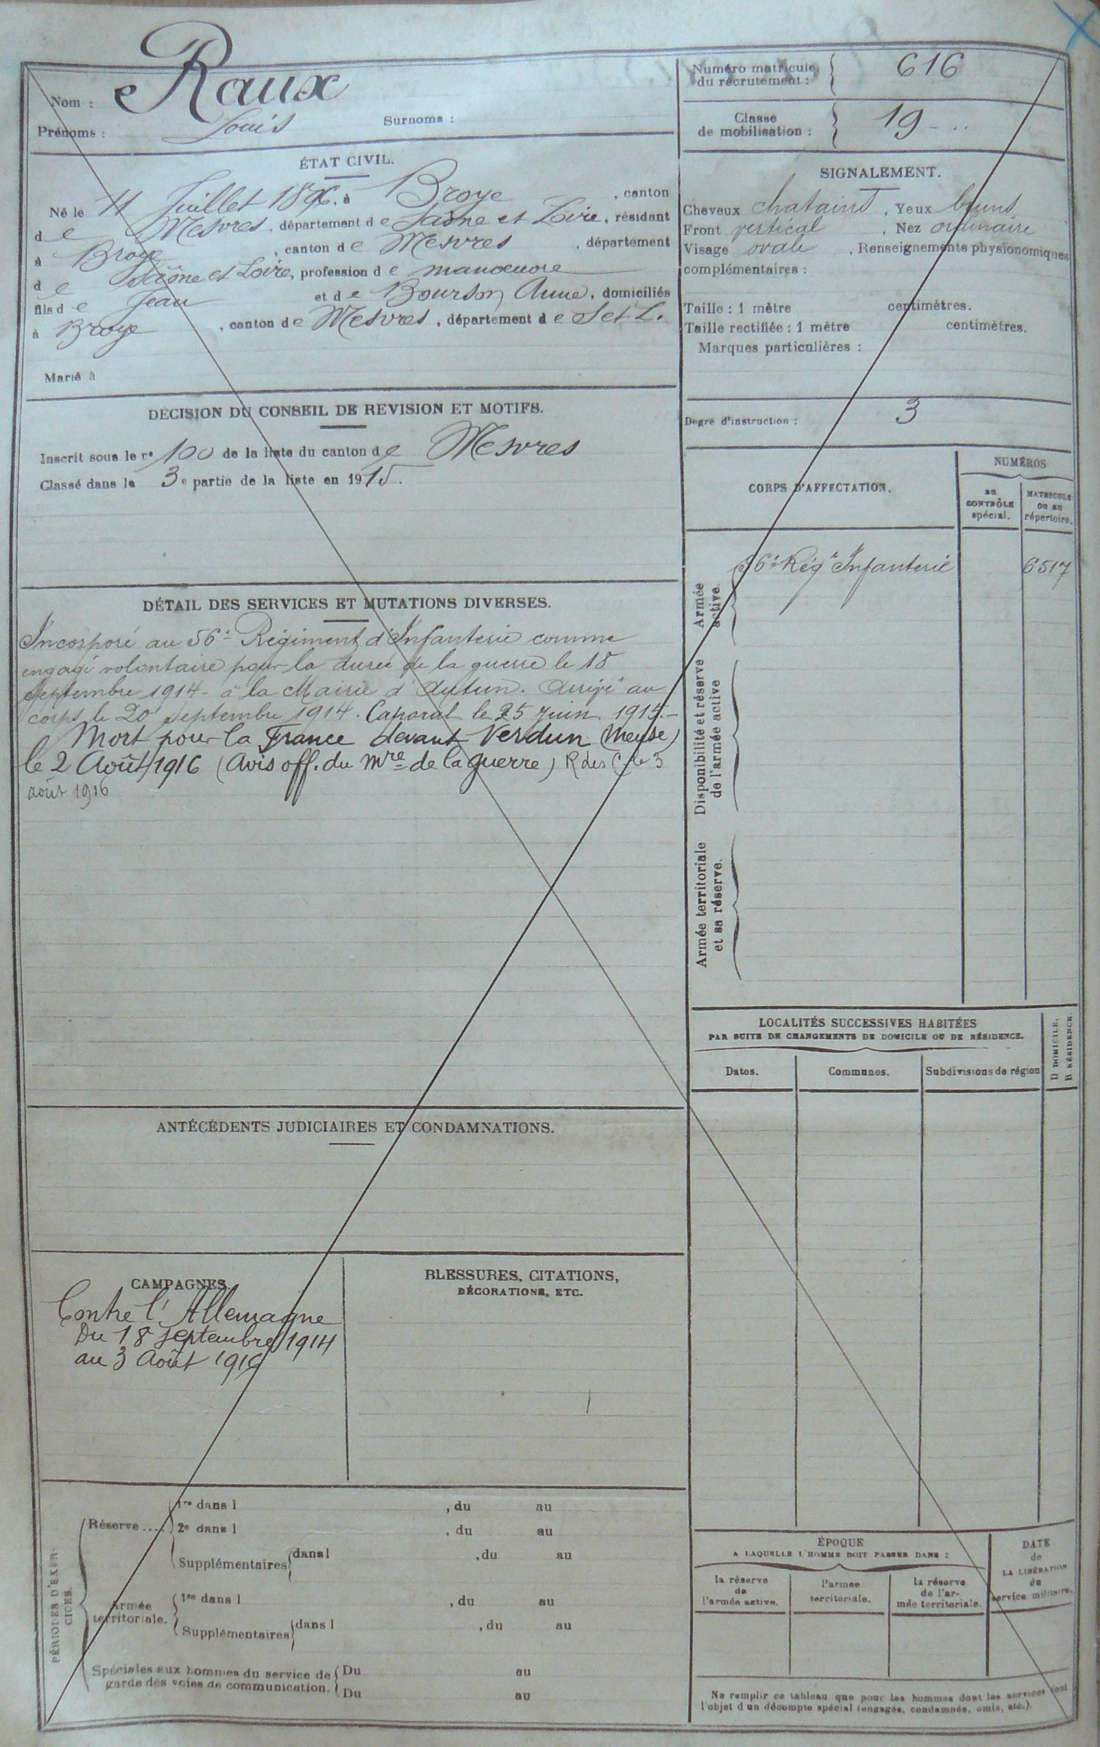 Nom : Raux
Prénoms : Louis Surnoms :
Numéro matricule du recrutement : 616
Classe de mobilisation : 19
ÉTAT CIVIL.
Né le 11 Juillet 1896. à Broye, canton
de Mesvres, département de Saône et Loire, résidant
à Broye, canton de Mesvres, département
de Saône et Loire, profession de manoeuvre
fils de Jean et de Bourson Anne, domiciliés
à Broye, canton de Mesvres, département de S et L.
Marié à
SIGNALEMENT.
Cheveux chatains, Yeux bruns
Front vertical, Nez ordinaire
Visage ovale, Renseignements physionomiques
complémentaires :
Taille : 1 mètre centimètres.
Taille rectifiée : 1 mètre centimètres.
Marques particulières :
Degré d'instruction : 3
DÉCISION DU CONSEIL DE REVISION ET MOTIFS.
Inscrit sous le no 100 de la liste du canton de Mesvres
Classé dans la 3e partie de la liste en 1915.
DÉTAIL DES SERVICES ET MUTATIONS DIVERSES.
Incorporé au 56e Régiment d'Infanterie comme
engagé volontaire pour la durée de la guerre le 18
Septembre 1914 à la Mairie d'Autun. Arrivé au
corps le 20 septembre 1914. Caporal le 25 juin 1915.
Mort pour la France devant Verdun (Meuse)
le 2 Août 1916 (Avis off. du mre de la guerre) R des C le 3
août 1916
CORPS D'AFFECTATION.
NUMÉROS
au CONTRÔLE spécial.
MATRICULE ou au répertoire.
Armée active
56e Régt Infanterie 6517
Disponibilité et réserve de l'armée active
Armée territoriale et sa réserve.
LOCALITÉS SUCCESSIVES HABITÉES
PAR SUITE DE CHANGEMENTS DE DOMICILE OU DE RÉSIDENCE.
Dates. Communes. Subdivisions de région
D DOMICILE.
R RÉSIDENCE.
ANTÉCÉDENTS JUDICIAIRES ET CONDAMNATIONS.
CAMPAGNES.
Contre l'Allemagne
Du 18 septembre 1914
au 3 Août 1916
BLESSURES, CITATIONS,
DÉCORATIONS, ETC.
PÉRIODES D'EXERCICES.
Réserve .... 1re dans l , du au
2e dans l , du au
Supplémentaires dans l , du au
Armée territoriale. 1re dans l , du au
Supplémentaires dans l , du au
Spéciales aux hommes du service de garde des voies de communication. Du au
Du au
ÉPOQUE
A LAQUELLE L'HOMME DOIT PASSER DANS :
la réserve de l'armée active.
l'armée territoriale.
la réserve de l'armée territoriale.
DATE de LA LIBÉRATION du service militaire.
Ne remplir ce tableau que pour les hommes dont les services font
l'objet d'un décompte spécial (engagés, condamnés, omis, etc.).